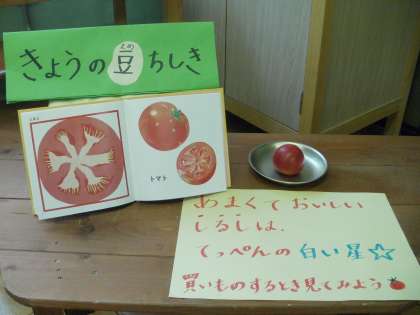 きょうの豆ちしき
まめ
トマト
あまくておいしい
しるしは、
てっぺんの白い星☆
買いものするとき見てみよう